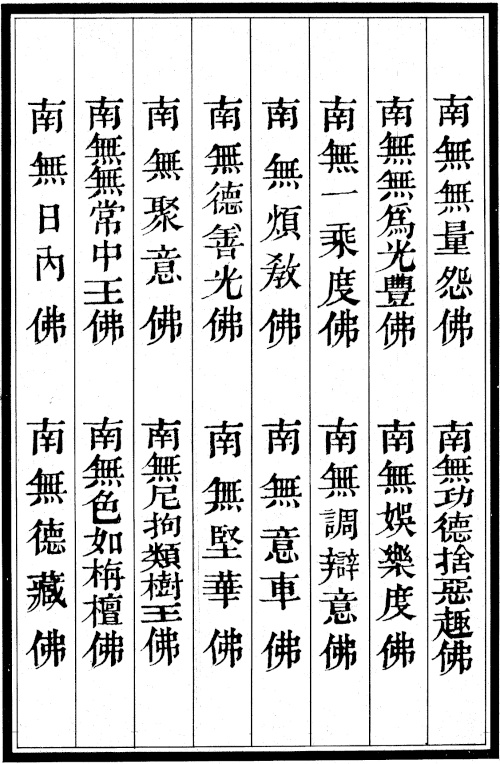 南無無量怨佛　南無功德捨惡趣佛
南無無爲光豐佛　南無娛樂度佛
南無一乘度佛　南無調辯意佛
南無煩敎佛　南無意車佛
南無德善光佛　南無堅華佛
南無聚意佛　南無尼拘類樹王佛
南無無常中王佛　南無色如栴檀佛
南無日內佛　南無德藏佛